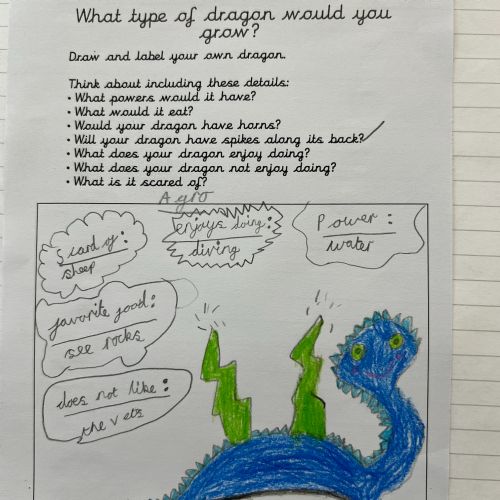 What type of dragon would you
grow?
Draw and label your own dragon.
Think about including these details:
• What powers would it have?
• What would it eat?
• Would your dragon have horns?
• Will your dragon have spikes along its back?
• What does your dragon enjoy doing?
• What does your dragon not enjoy doing?
• What is it scared of?
Agro
Scard of:
sheep
enjoys doing:
diving
Power:
water
favorite food:
see rocks
does not like:
the vets